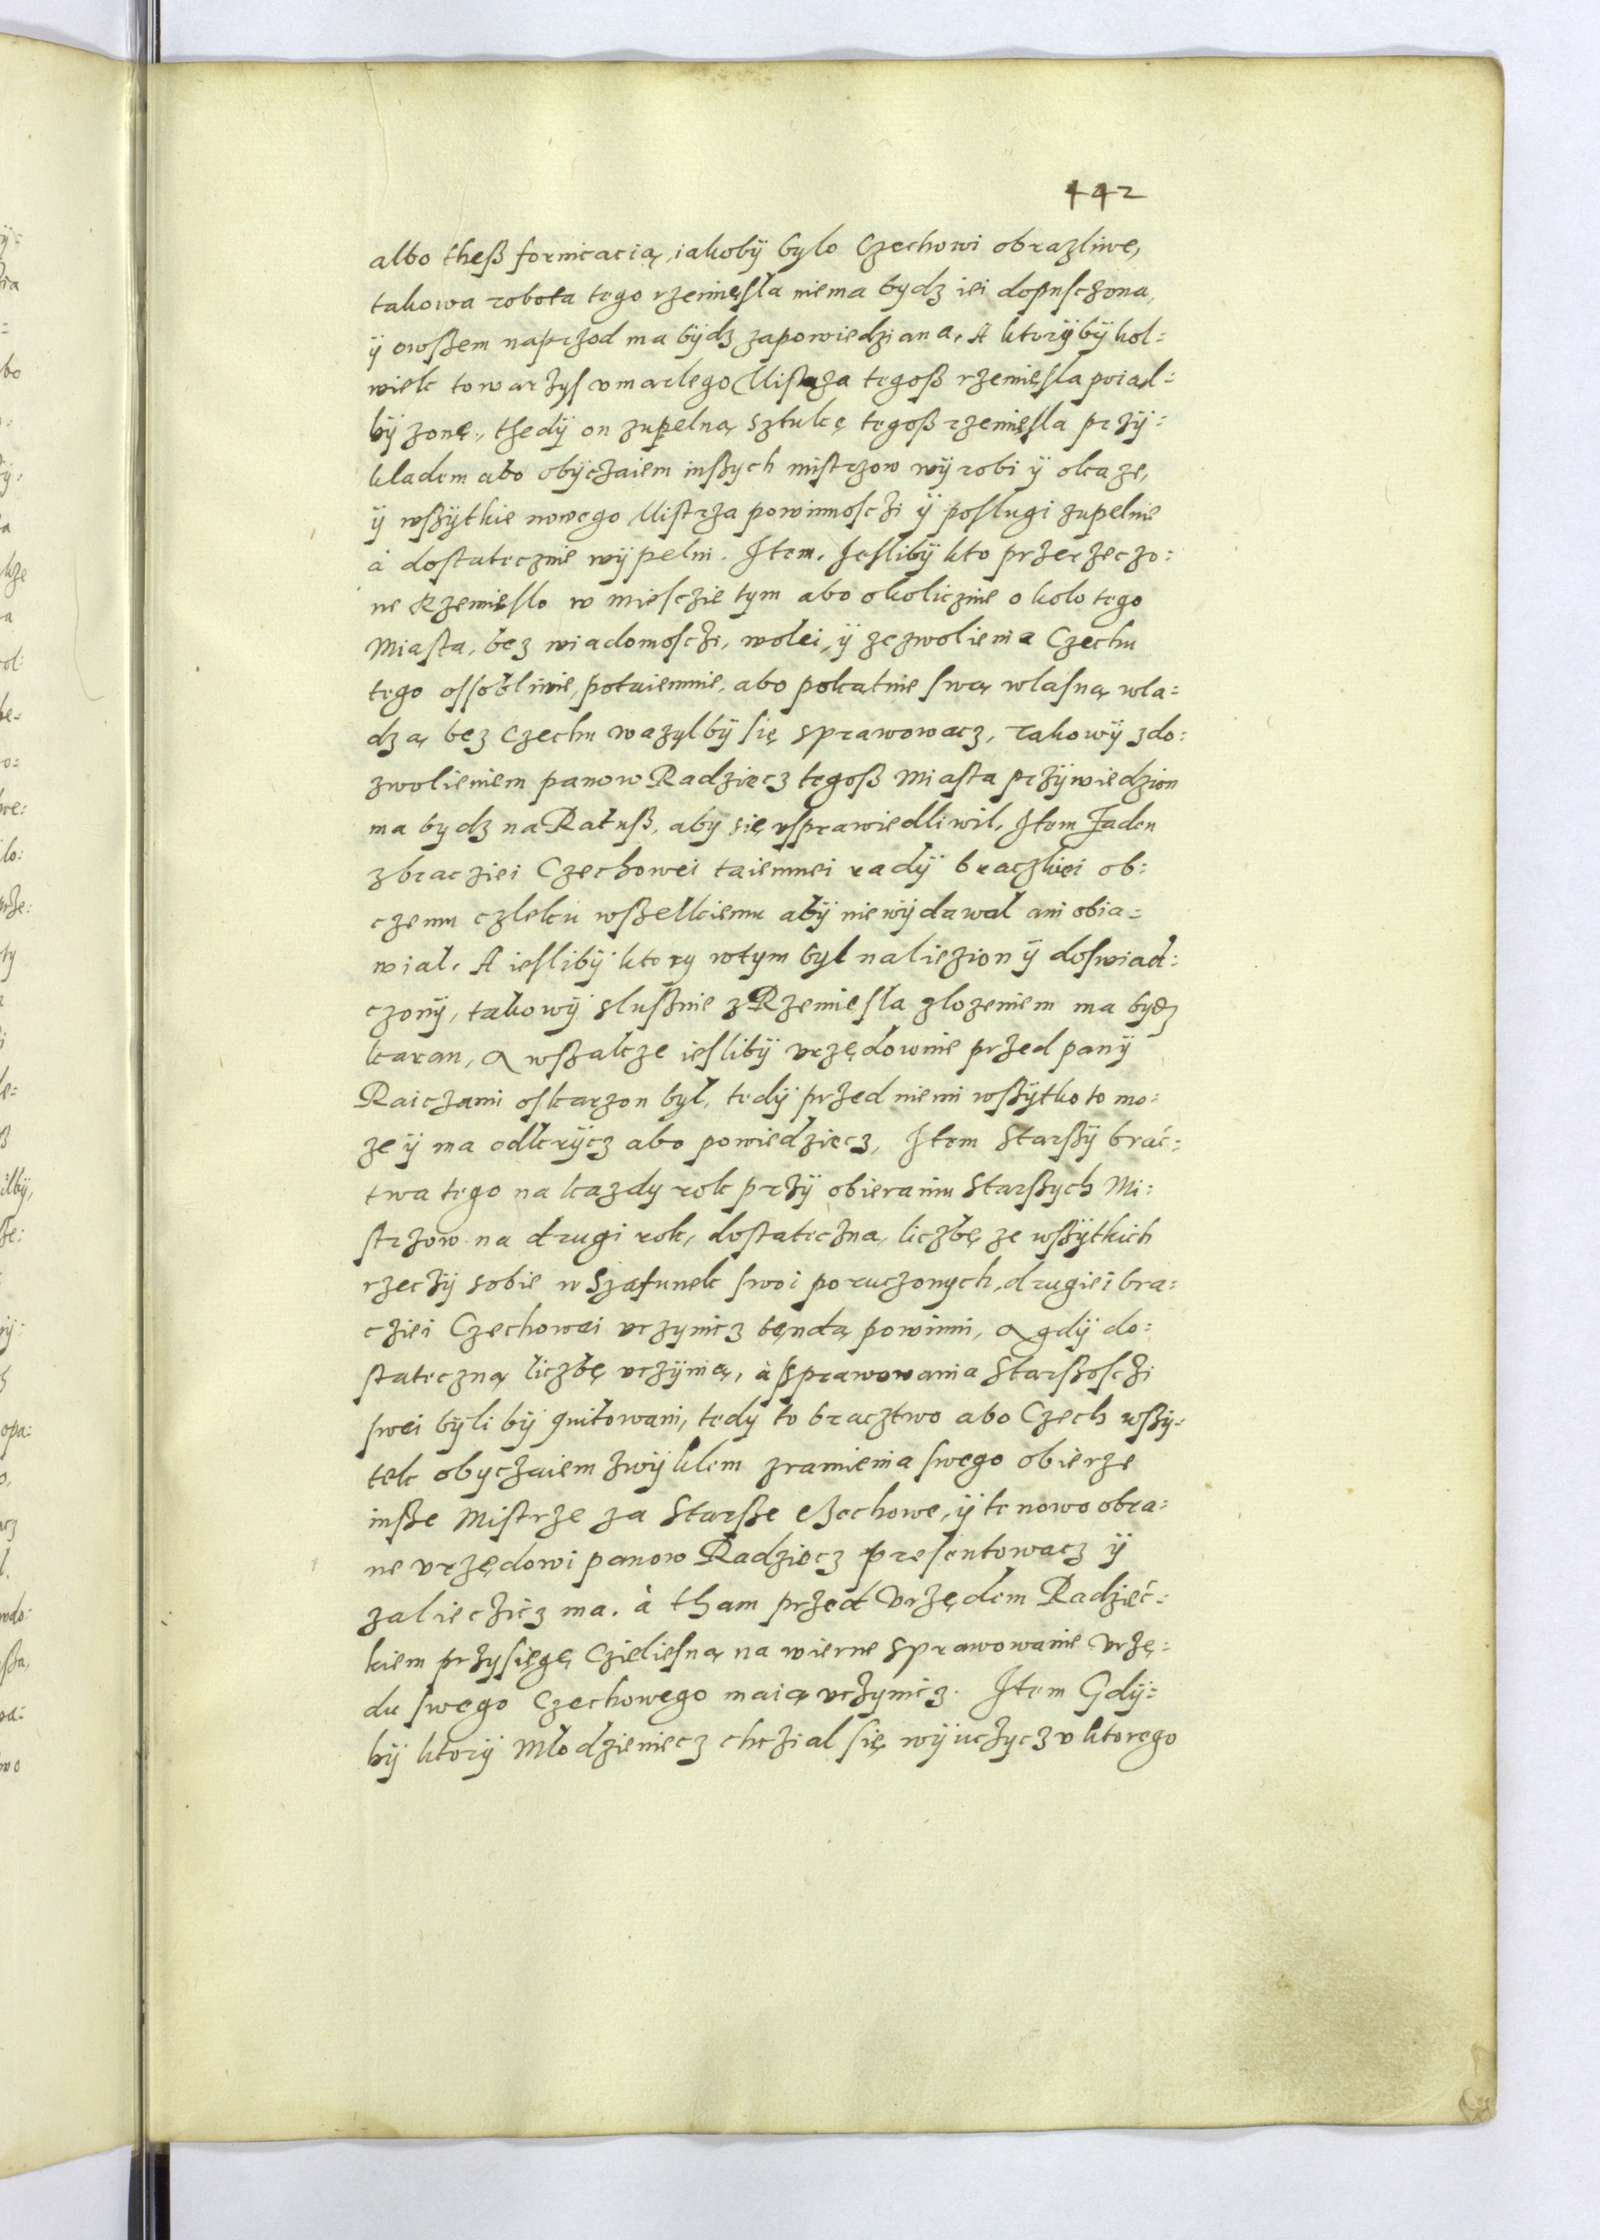 442
albo theß fornicacią, iakobÿ bylo Czechowi obrazliwe,
takowa robota tego rzemięsla niema bydz iei dopuschzona,
ÿ owßem naprzod ma bÿdz zapowiedziana. A ktorÿbÿ kol=
wiek towarzys vmarlego Mistrza tegoß rzemięsla poial=
bÿ zonę, thedÿ on zupelną sztukę tegoß rzemięsla przÿ=
kladem abo obÿczaiem inßych mistrzow wÿrobi ÿ okaze,
ÿ wßÿtkie nowego Mistrza powinnosczi ÿ poslugi zupelnie
à dostatecznie wÿpelni. Item. Jeslibÿ kto przerzeczo=
ne Rzemieslo w miesczie tym abo okolicznie okolo tego
Miasta, bez wiadomosczi, wolei, ÿ zezwolienia Czechu
tego ossobliwie, potaiemnie, abo pokatnie swą wlasną wla=
dzą bez Czechu wazylbÿ się sprawowacz, takowÿ zdo=
zwolieniem panow Radziecz tegoß Miasta przÿwiedzion
ma bydz na Ratuß, abÿ się vsprawiedliwil, Item Jaden
zbracziei Czechowei taiemnei radÿ braczkiei ob=
czemu czleku wßelkiemu abÿ niewÿdawal ani obia=
wial. A ieslibÿ ktory wtym byl naliezion ÿ doswiad=
czonÿ, takowÿ slußnie z Rzemiesla zlozeniem ma bydz
karan, A wßakze ieslibÿ vrzędownie przed panÿ
Raiczami oskarzon byl, tedÿ przed niemi wßÿtko to mo=
ze ÿ ma odkrÿcz abo powiedziecz, Item Starßÿ brac=
twa tego na kazdy rok przÿ obieraniu Starßych Mi=
strzow na drugi rok, dostateczna, liczbę ze wßÿtkich
rzeczÿ sobie w Szafunek swoi poruczonych, drugiei bra=
cziei Czechowei vczynicz będą powinni, A gdÿ do=
stateczną liczbę vczÿnią, à ßprawowania Starßosczi
swei bÿli bÿ quitowani, tedy to bracztwo abo Czech wßÿ=
tek obyczaiem zwÿklem zramienia swego obierze
inße Mistrze za Starße Czechowe, ÿ te nowo obra=
ne vrzędowi panow Radziecz presentowacz ÿ
zalieczicz ma. à tham przed Vrzędem Radziec=
kiem przysięgę Czieliesną na wierne sprawowanie Vrzę=
du swego Czechowego maią vczynicz. Item Gdÿ=
bÿ ktorÿ Mlodzieniecz chczial się wÿuczycz v ktorego